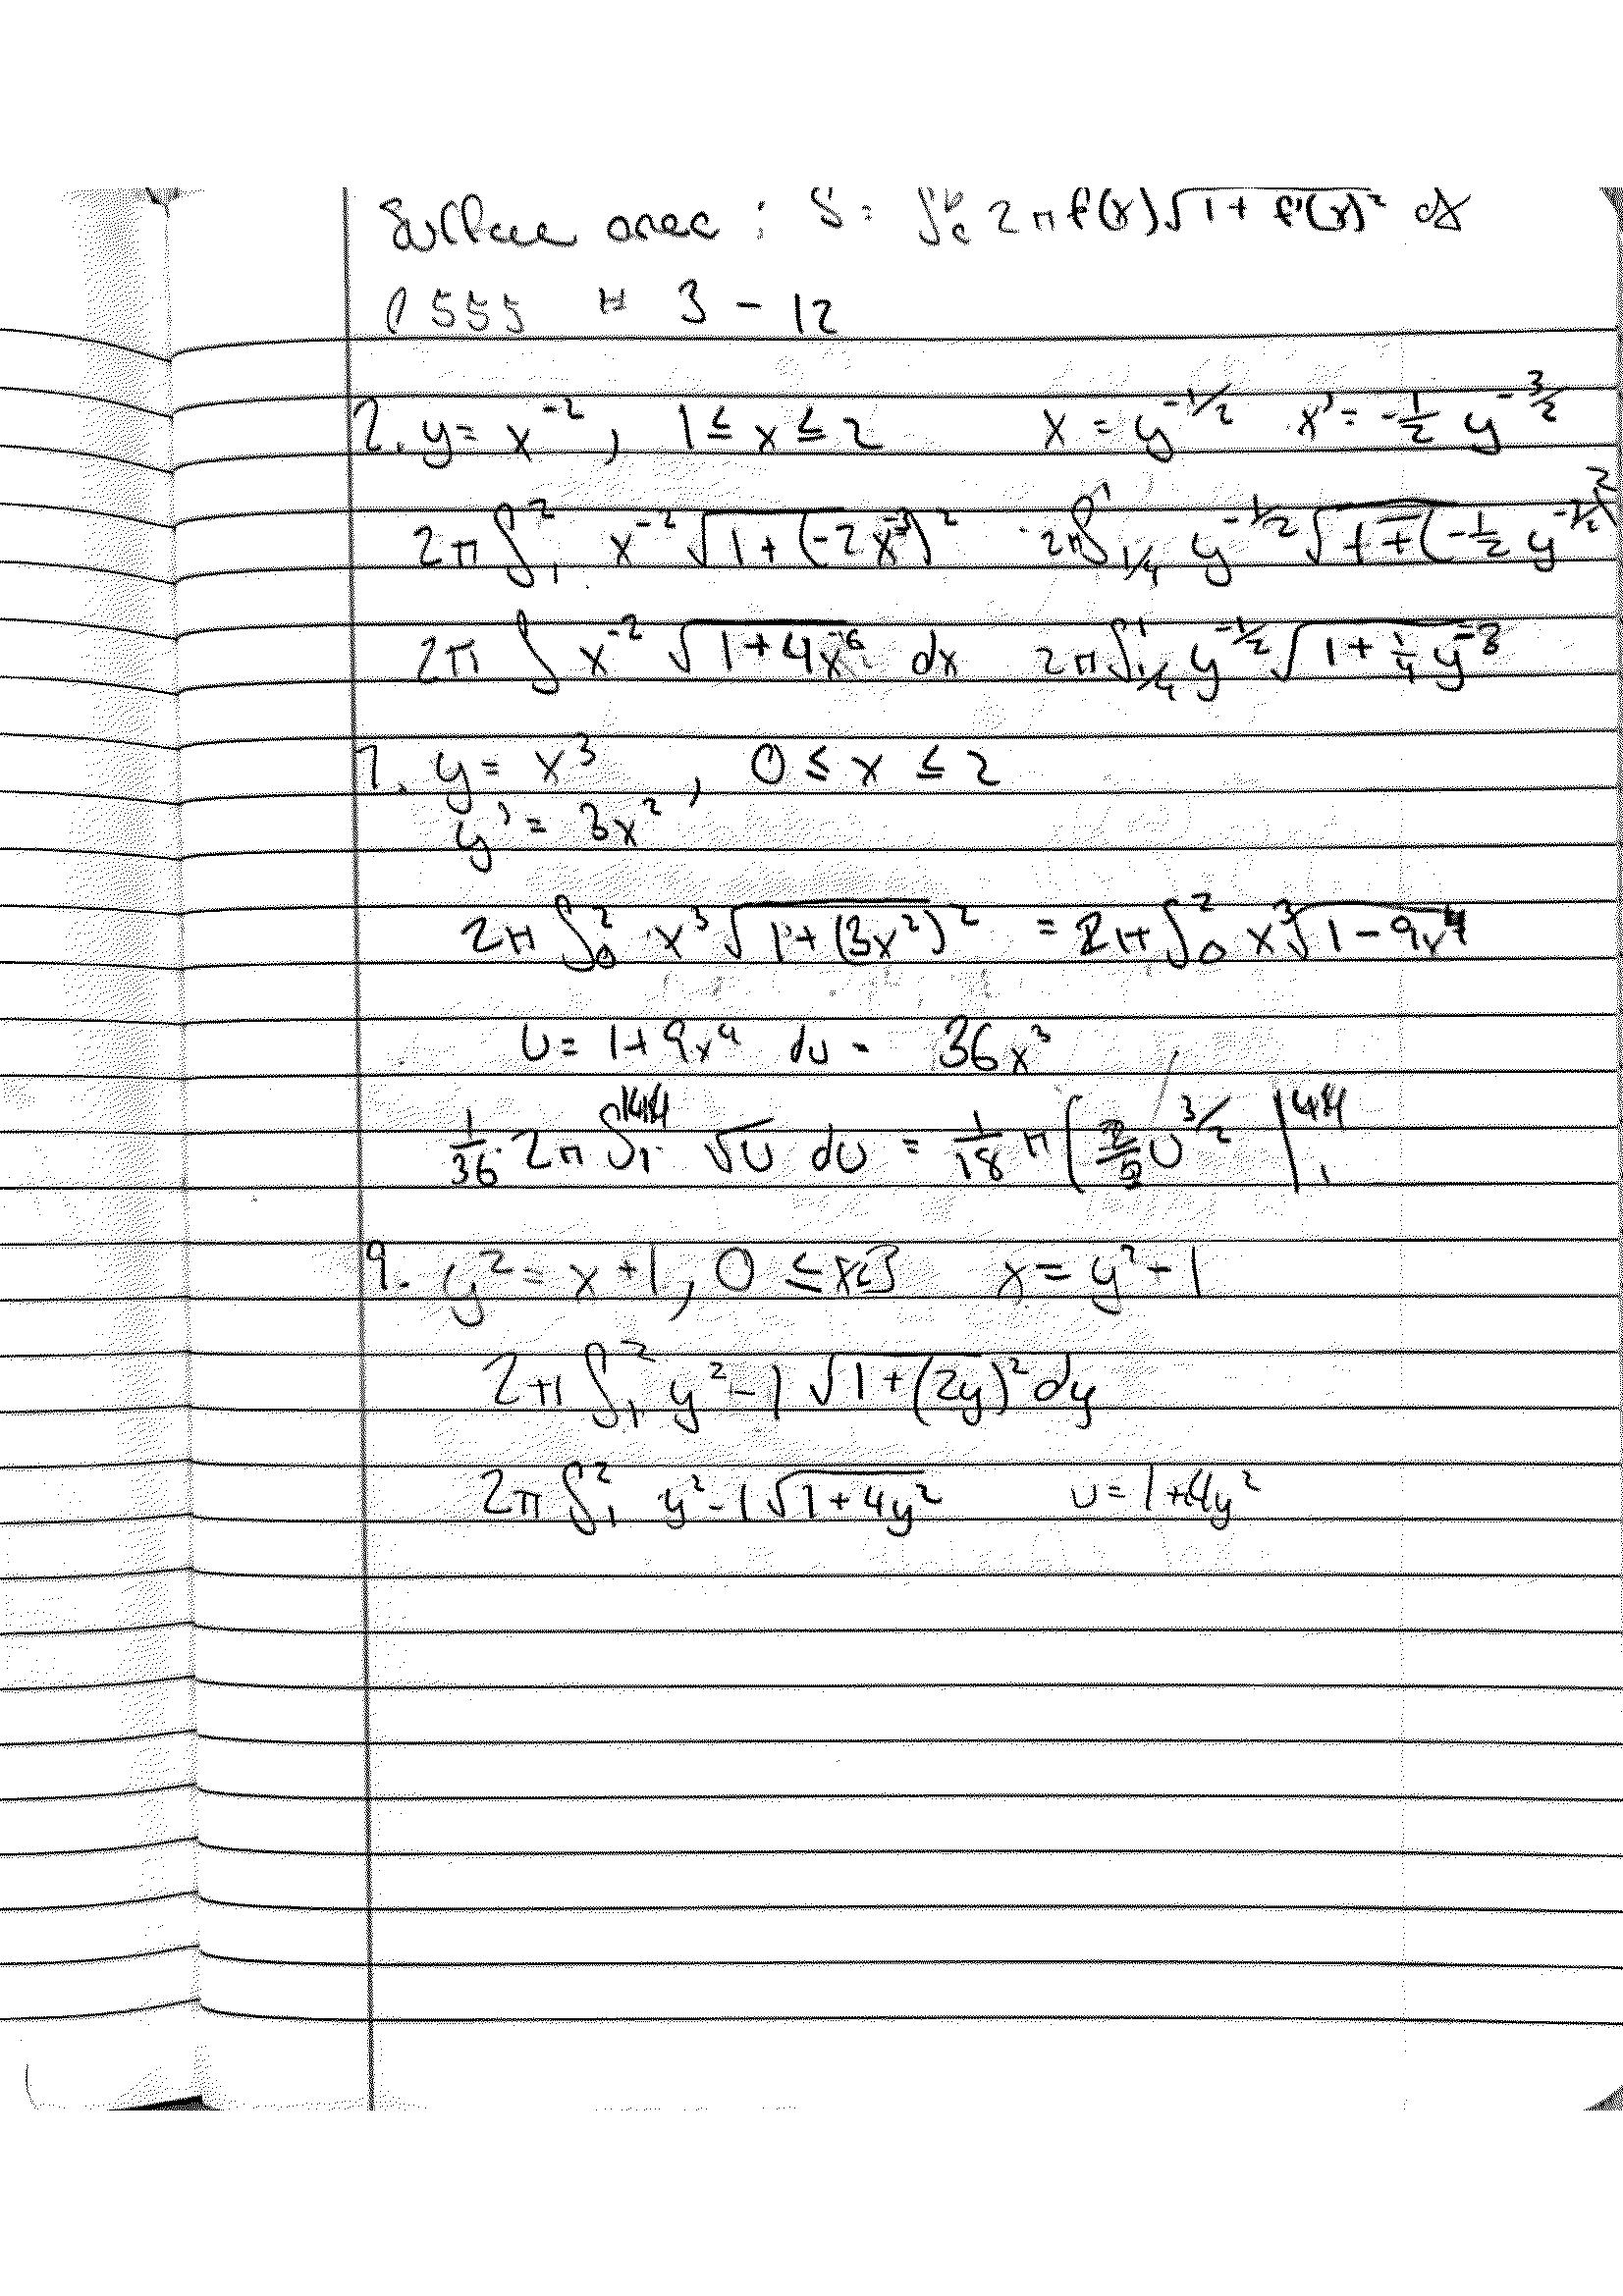 Surface area : S = ∫_a^b 2π f(x) √(1 + f'(x)²) dx
P 555 # 3 - 12
2. y = x^-2 , 1 ≤ x ≤ 2 x = y^-1/2 x' = -1/2 y^-3/2
2π ∫_1^2 x^-2 √(1 + (-2x^-3)²) 2π ∫_1/4^1 y^-1/2 √(1 + (-1/2 y^-3/2)²)
2π ∫ x^-2 √(1 + 4x^-6) dx 2π ∫_1/4^1 y^-1/2 √(1 + 1/4 y^-3)
7. y = x³ , 0 ≤ x ≤ 2
y' = 3x²
2π ∫_0^2 x³ √(1 + (3x²)²) = 2π ∫_0^2 x³ √(1 - 9x⁴)
u = 1 + 9x⁴ du = 36x³
1/36 · 2π ∫_1^144 √u du = 1/18 π ( u^3/2 |
9. y² = x + 1, 0 ≤ x ≤ 3 x = y² - 1
2π ∫_1^2 y² - 1 √(1 + (2y)²) dy
2π ∫_1^2 y² - 1 √(1 + 4y²) u = 1 + 4y²